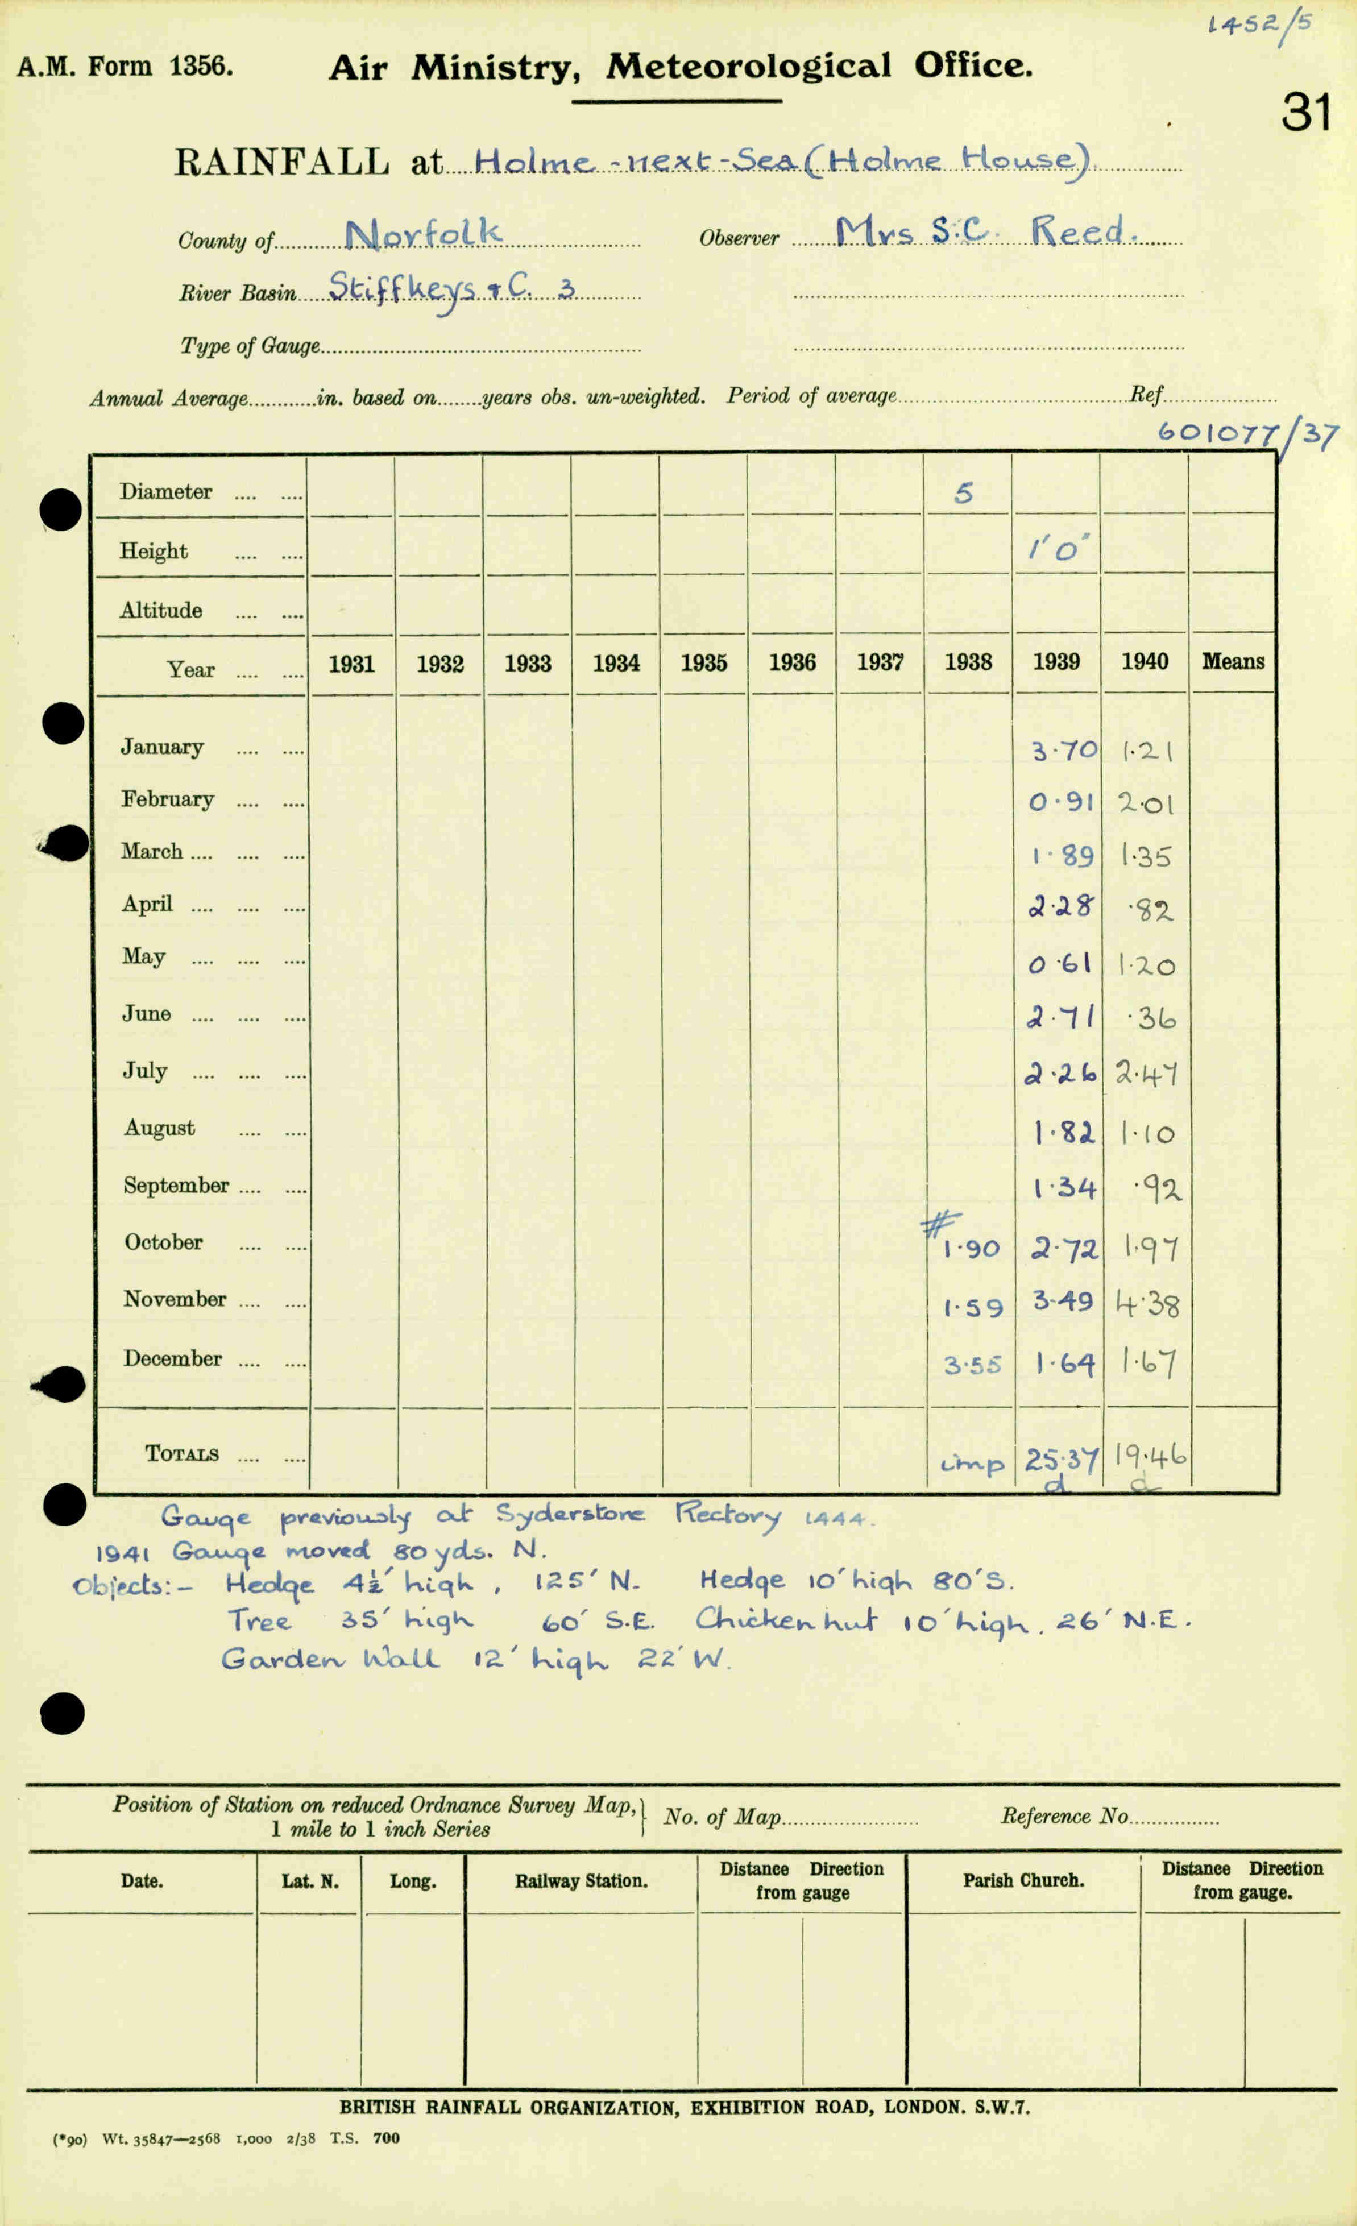 1452/5
A.M. Form 1356. Air Ministry, Meteorological Office.
31
RAINFALL at Holme-next-Sea (Holme House).
County of Norfolk Observer Mrs S.C. Reed.
River Basin Stiffkeys & C. 3
Type of Gauge
Annual Average in. based on years obs. un-weighted. Period of average Ref.
601077/37
Diameter .... .... 5
Height .... .... 1'0"
Altitude .... ....
Year .... .... 1931 1932 1933 1934 1935 1936 1937 1938 1939 1940 Means
January .... .... 3.70 1.21
February .... .... 0.91 2.01
March .... .... .... 1.89 1.35
April .... .... .... 2.28 .82
May .... .... .... 0.61 1.20
June .... .... .... 2.71 .36
July .... .... .... 2.26 2.47
August .... .... 1.82 1.10
September .... .... 1.34 .92
October .... .... # 1.90 2.72 1.97
November .... .... 1.59 3.49 4.38
December .... .... 3.55 1.64 1.67
TOTALS .... .... imp 25.37 19.46
d d
Gauge previously at Syderstone Rectory 1444.
1941 Gauge moved 80yds. N.
Objects:- Hedge 4½' high, 125' N. Hedge 10' high 80'S.
Tree 35' high 60' S.E. Chicken hut 10' high. 26' N.E.
Garden Wall 12' high 22' W.
Position of Station on reduced Ordnance Survey Map, } No. of Map Reference No.
1 mile to 1 inch Series
Date. Lat. N. Long. Railway Station. Distance Direction from gauge Parish Church. Distance Direction from gauge.
BRITISH RAINFALL ORGANIZATION, EXHIBITION ROAD, LONDON. S.W.7.
(*90) Wt. 35847—2568 1,000 2/38 T.S. 700